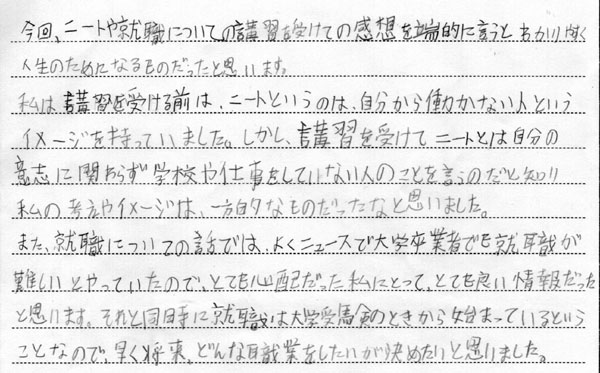 今回、ニートや就職についての講習を受けての感想を端的に言うと わかり易く
人生のためになるものだったと思います。
私は講習を受ける前は、ニートというのは、自分から働かない人という
イメージを持っていました。しかし、講習を受けてニートとは自分の
意志に関わらず学校や仕事をしていない人のことを言うのだと知り
私の考えやイメージは、一方的なものだったなと思いました。
また、就職についての話では、よくニュースで大学卒業者でも就職が
難しいとやっていたので、とても心配だった私にとって、とても良い情報だった
と思います。それと同時に就職は大学受験のときから始まっているという
ことなので、早く将来、どんな職業をしたいか決めたいと思いました。